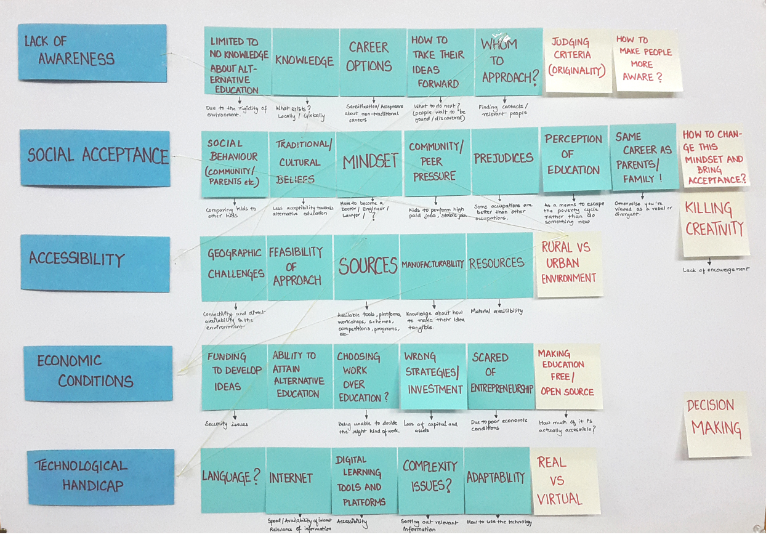 LACK OF
AWARENESS
LIMITED TO
NO KNOWLEDGE
ABOUT ALT-
ERNATIVE
EDUCATION
Due to the rigidity of
environment.
KNOWLEDGE
What exists?
Locally / Globally
CAREER
OPTIONS
about non-traditional
careers
HOW TO
TAKE THEIR
IDEAS
FORWARD
What to do next?
(people wait to be
found / discovered)
WHOM
TO
APPROACH?
Finding contacts/
relevant people
JUDGING
CRITERIA
(ORIGINALITY)
HOW TO
MAKE PEOPLE
MORE
AWARE?
SOCIAL ACCEPTANCE
SOCIAL
BEHAVIOUR
(COMMUNITY/
PARENTS etc)
Comparing kids to
other kids
TRADITIONAL/
CULTURAL
BELIEFS
Less acceptibility towards
alternative education
MINDSET
Have to become a
Doctor / Engineer /
Lawyer / ?
COMMUNITY/
PEER
PRESSURE
Kids to perform, high
paid jobs,
PREJUDICES
Some occupations are
better than other
occupations.
PERCEPTION
OF
EDUCATION
As a means to escape
the poverty cycle
rather than do
something new
SAME
CAREER AS
PARENTS/
FAMILY!
Otherwise you're
viewed as a rebel or
divergent.
HOW TO CHAN-
GE THIS
MINDSET AND
BRING
ACCEPTANCE?
KILLING
CREATIVITY
Lack of encouragement
ACCESSIBILITY
GEOGRAPHIC
CHALLENGES
Connectivity and
availability to the
environment
FEASIBILITY
OF
APPROACH
SOURCES
Available tools, platforms,
workshops, schemes,
competitions, programs,
etc.
MANUFACTURABILITY
Knowledge about how
to make their idea
tangible
RESOURCES
Material availibility
RURAL VS
URBAN
ENVIRONMENT
ECONOMIC
CONDITIONS
FUNDING
TO DEVELOP
IDEAS
Security issues
ABILITY TO
ATTAIN
ALTERNATIVE
EDUCATION
CHOOSING
WORK
OVER
EDUCATION?
Being unable to decide
the right kind of work.
WRONG
STRATEGIES/
INVESTMENT
Loss of capital and
assets
SCARED
OF
ENTREPRENEURSHIP
Due to poor economic
conditions
MAKING
EDUCATION
FREE/
OPEN SOURCE
How much of it is
actually accessible?
DECISION
MAKING
TECHNOLOGICAL
HANDICAP
LANGUAGE?
INTERNET
Speed / Availability of
Relevance of information
DIGITAL
LEARNING
TOOLS AND
PLATFORMS
Accessibility
COMPLEXITY
ISSUES?
Sorting out relevant
information
ADAPTABILITY
How to use the technology
REAL
VS
VIRTUAL